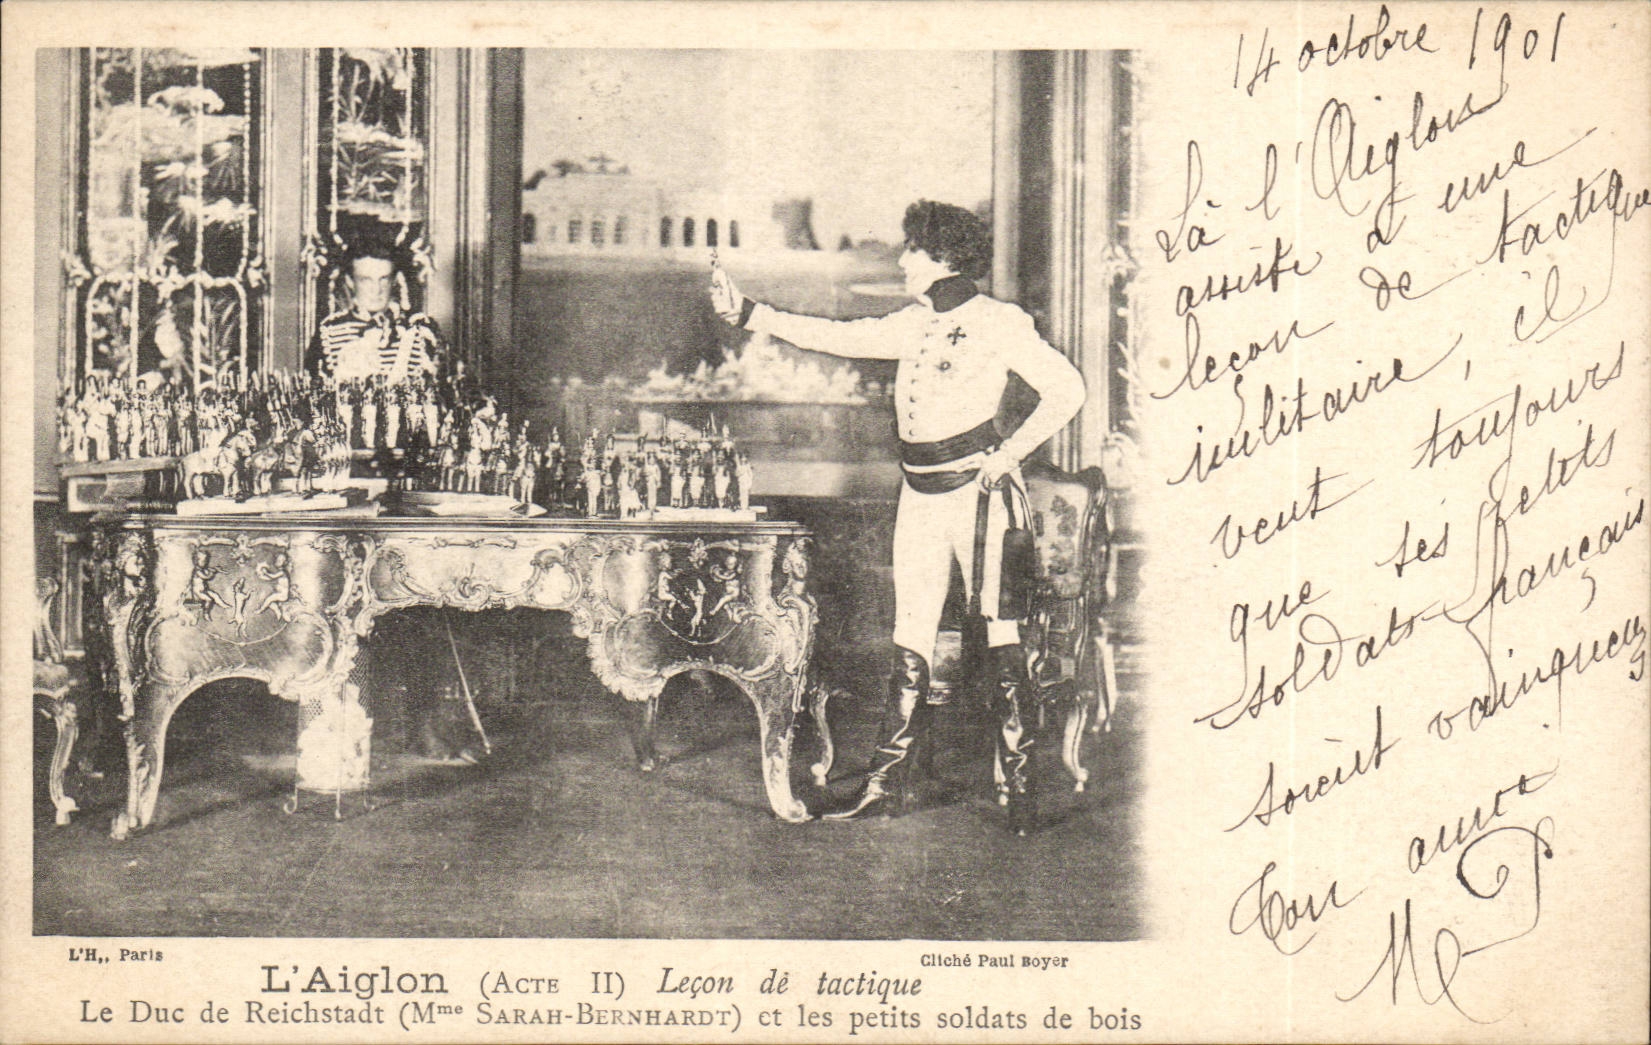 14 octobre 1901
Là l'Aiglon
assiste à une
leçon de tactique
militaire, il
veut toujours
que ses petits
soldats français
soient vainqueurs
Ton amie
L'H,, Paris
Cliché Paul Boyer
L'Aiglon (ACTE II) Leçon de tactique
Le Duc de Reichstadt (Mme SARAH-BERNHARDT) et les petits soldats de bois